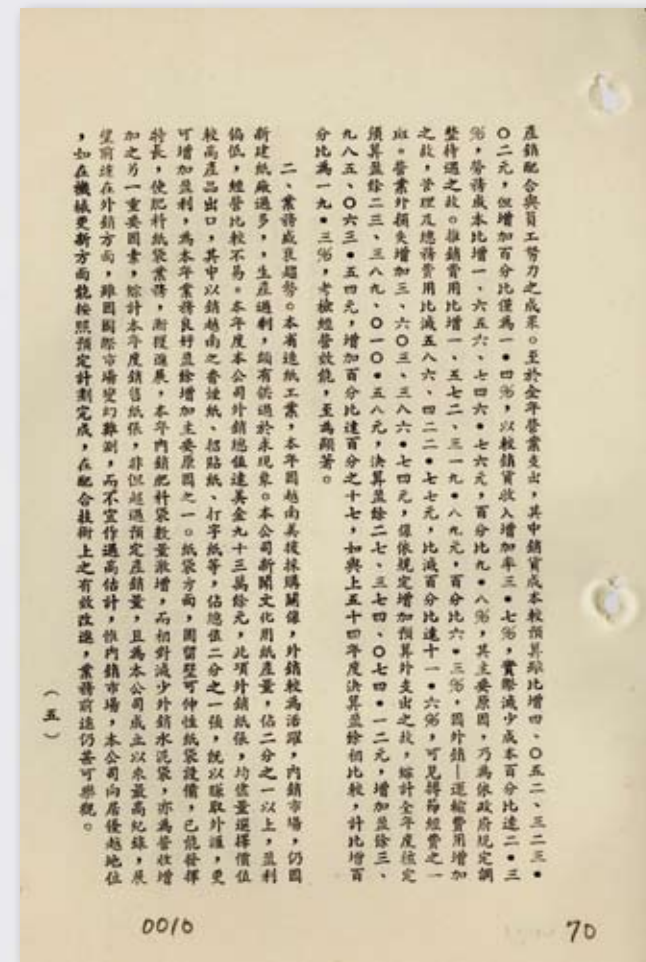 產銷配合與員工努力之成果。至於全年營業支出，其中銷貨成本較預算雖比增四、〇五二、三二三•
〇二元，但增加百分比僅為一•四％，以較銷貨收入增加率三•七％，實際減少成本百分比達二•三
％，勞務成本比增一、六五六、七四六•七六元，百分比九•八％，其主要原因，乃為依政府規定調
整待遇之故。推銷費用比增一、五七二、三一九•八九元，百分比六•三％，因外銷—運輸費用增加
之故，管理及總務費用比減五八六、四二二•七七元，比減百分比達十一•六％，可見撙節經費之一
班。營業外損失增加三、六〇三、三八六•七四元，係依規定增加預算外支出之故，綜計全年度核定
預算盈餘二三、三八九、〇一〇•五八元，決算盈餘二七、三七四、〇七四•一二元，增加盈餘三、
九八五、〇六三•五四元，增加百分比達百分之十七，如與上五十四年度決算盈餘相比較，計比增百
分比為一九•三％，考檢經營效能，至為顯著。
二、業務盛衰趨勢。本省造紙工業，本年因越南美援採購關係，外銷較為活躍，內銷市場，仍因
新建紙廠過多，，生產過剩，頗有供過於求現象。本公司新聞文化用紙產量，佔二分之一以上，盈利
偏低，經營比較不易。本年度本公司外銷總值達美金九十三萬餘元，此項外銷紙張，均儘量選擇價值
較高產品出口，其中以銷越南之香煙紙、招貼紙、打字紙等，佔總值二分之一強，既以賺取外匯，更
可增加盈利，為本年業務良好盈餘增加主要原因之一。紙袋方面，因留堅可伸性紙袋設備，已能發揮
特長，使肥料紙袋業務，漸獲進展，本年內銷肥料袋數量激增，而相對減少外銷水泥袋，亦為營收增
加之另一重要因素，綜計本年度銷售紙張，非但超過預定產銷量，且為本公司成立以來最高紀錄，展
望前途在外銷方面，雖因國際市場變幻難測，而不宜作過高估計，惟內銷市場，本公司向居優越地位
，如在機械更新方面能按照預定計劃完成，在配合技術上之有效改進，業務前途仍甚可樂觀。
（五）
0010
70